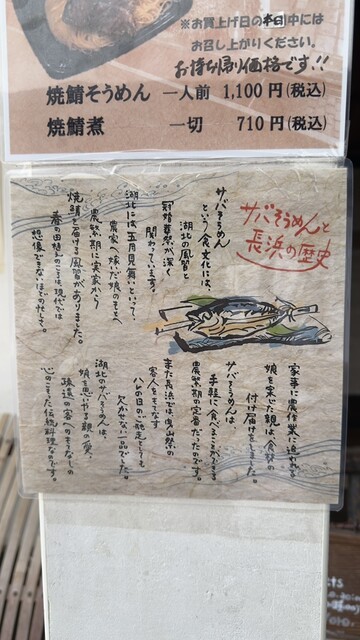 ※お買上げ日の半日中には
お召し上がりください。
お持ち帰り価格です!!
焼鯖そうめん 一人前 1,100円(税込)
焼鯖煮 一切 710円(税込)
サバそうめんと
長浜の歴史
サバそうめん
という食文化は、
湖北の風習と
冠婚葬祭が深く
関わっています。
湖北には五月見舞いといって、
農家へ嫁いだ娘のもとへ
農繁期に実家から
焼鯖を届ける風習がありました。
春の田植えのころは現代では
想像できないほどの忙しさ。
家事に農作業に追われる
娘を案じた親は、食卓の
付け届けをしました。
サバそうめんは
手軽に食べることができる
農繁期の定番だったのです。
また長浜では、曳山祭の
客人をもてなす
ハレの日のご馳走としても
欠かせない一品でした。
湖北のサバそうめんは、
娘を思いやる親の愛、
疎遠の客へのもてなしの
心のこもった伝統料理なのです。